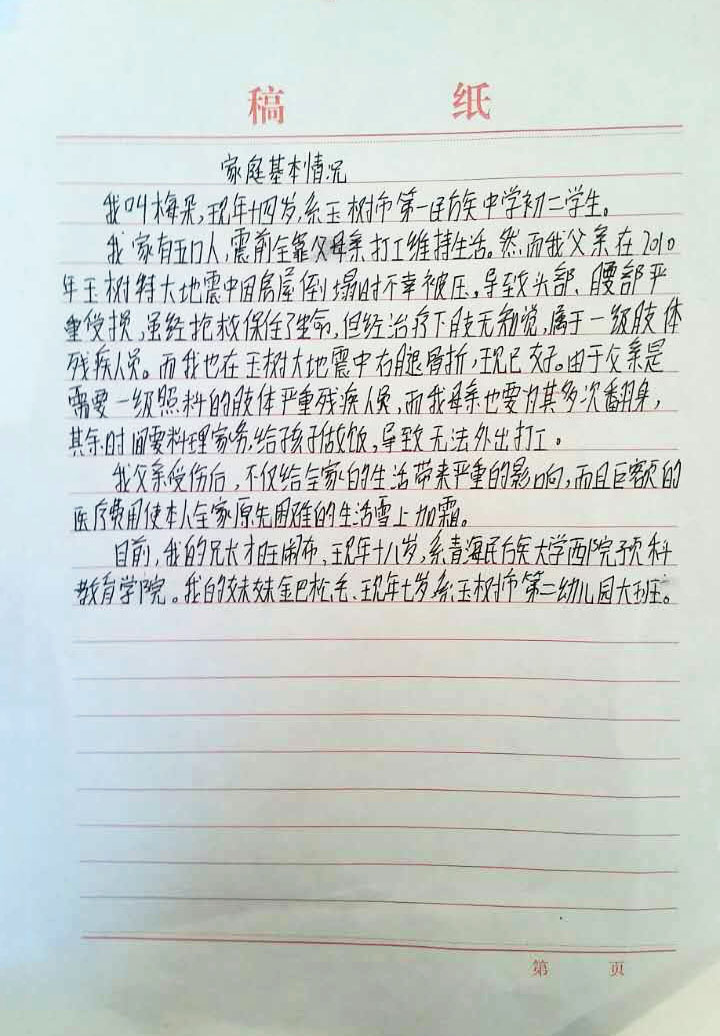 稿 纸
家庭基本情况
我叫梅朵,现年十四岁,系玉树市第一民族中学初二学生。
我家有五口人,震前全靠父母亲打工维持生活。然而我父亲在2010
年玉树特大地震中因房屋倒塌时不幸被压,导致头部、腰部严
重受损,虽经抢救保住了生命,但经治疗下肢无知觉,属于一级肢体
残疾人员。而我也在玉树大地震中右腿骨折,现已好。由于父亲是
需要一级照料的肢体严重残疾人员,而我母亲也要为其多次翻身,
其余时间要料理家务,给孩子做饭,导致无法外出打工。
我父亲受伤后,不仅给全家的生活带来严重的影响,而且巨额的
医疗费用使本人全家原先困难的生活雪上加霜。
目前,我的兄长才旺闹布、现年十八岁,系青海民族大学西院预科
教育学院。我的妹妹金巴松毛、现年七岁,系玉树市第二幼儿园大班。
第 页